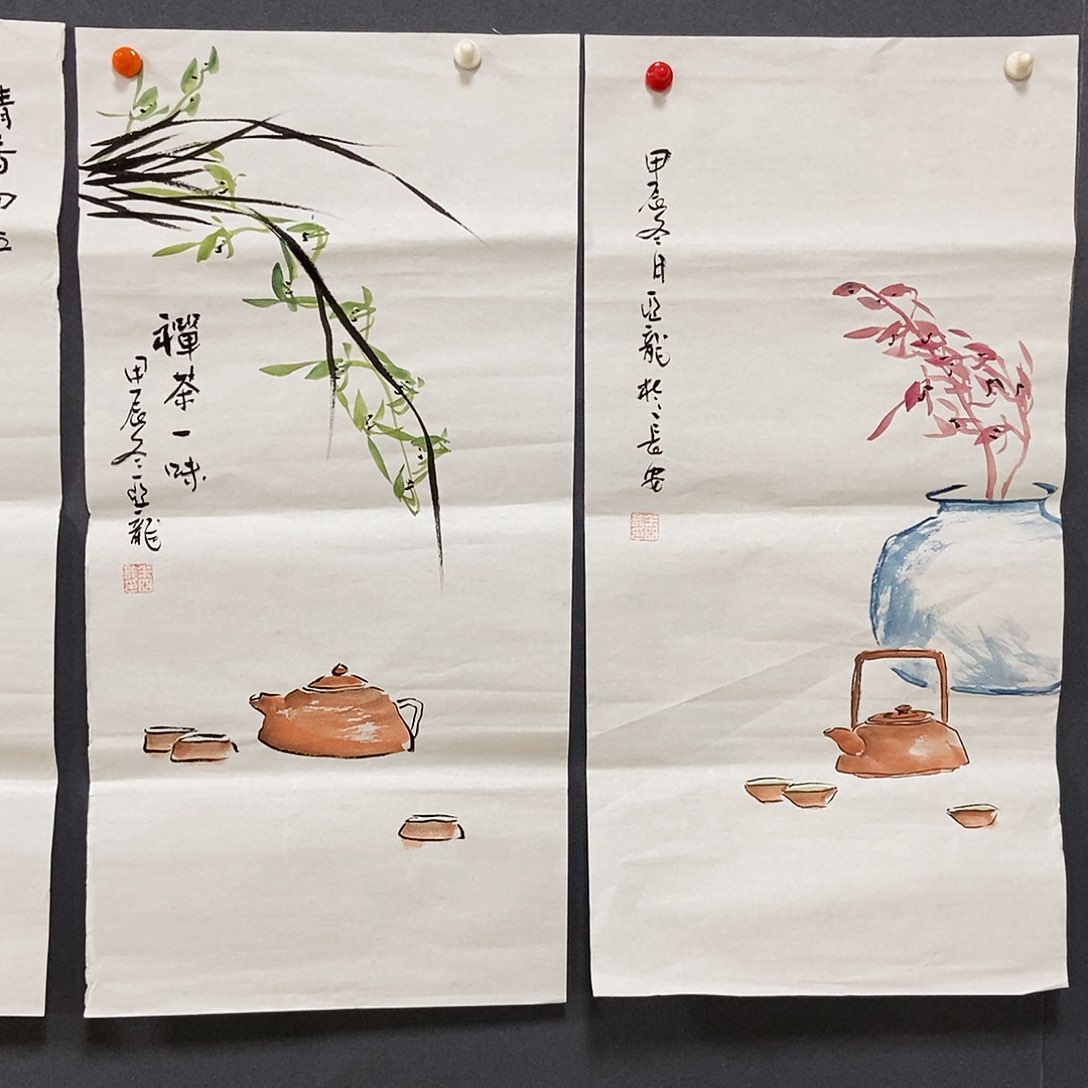 清香四
禪茶一味
甲辰冬亞龍
甲辰冬月亞龍於長安